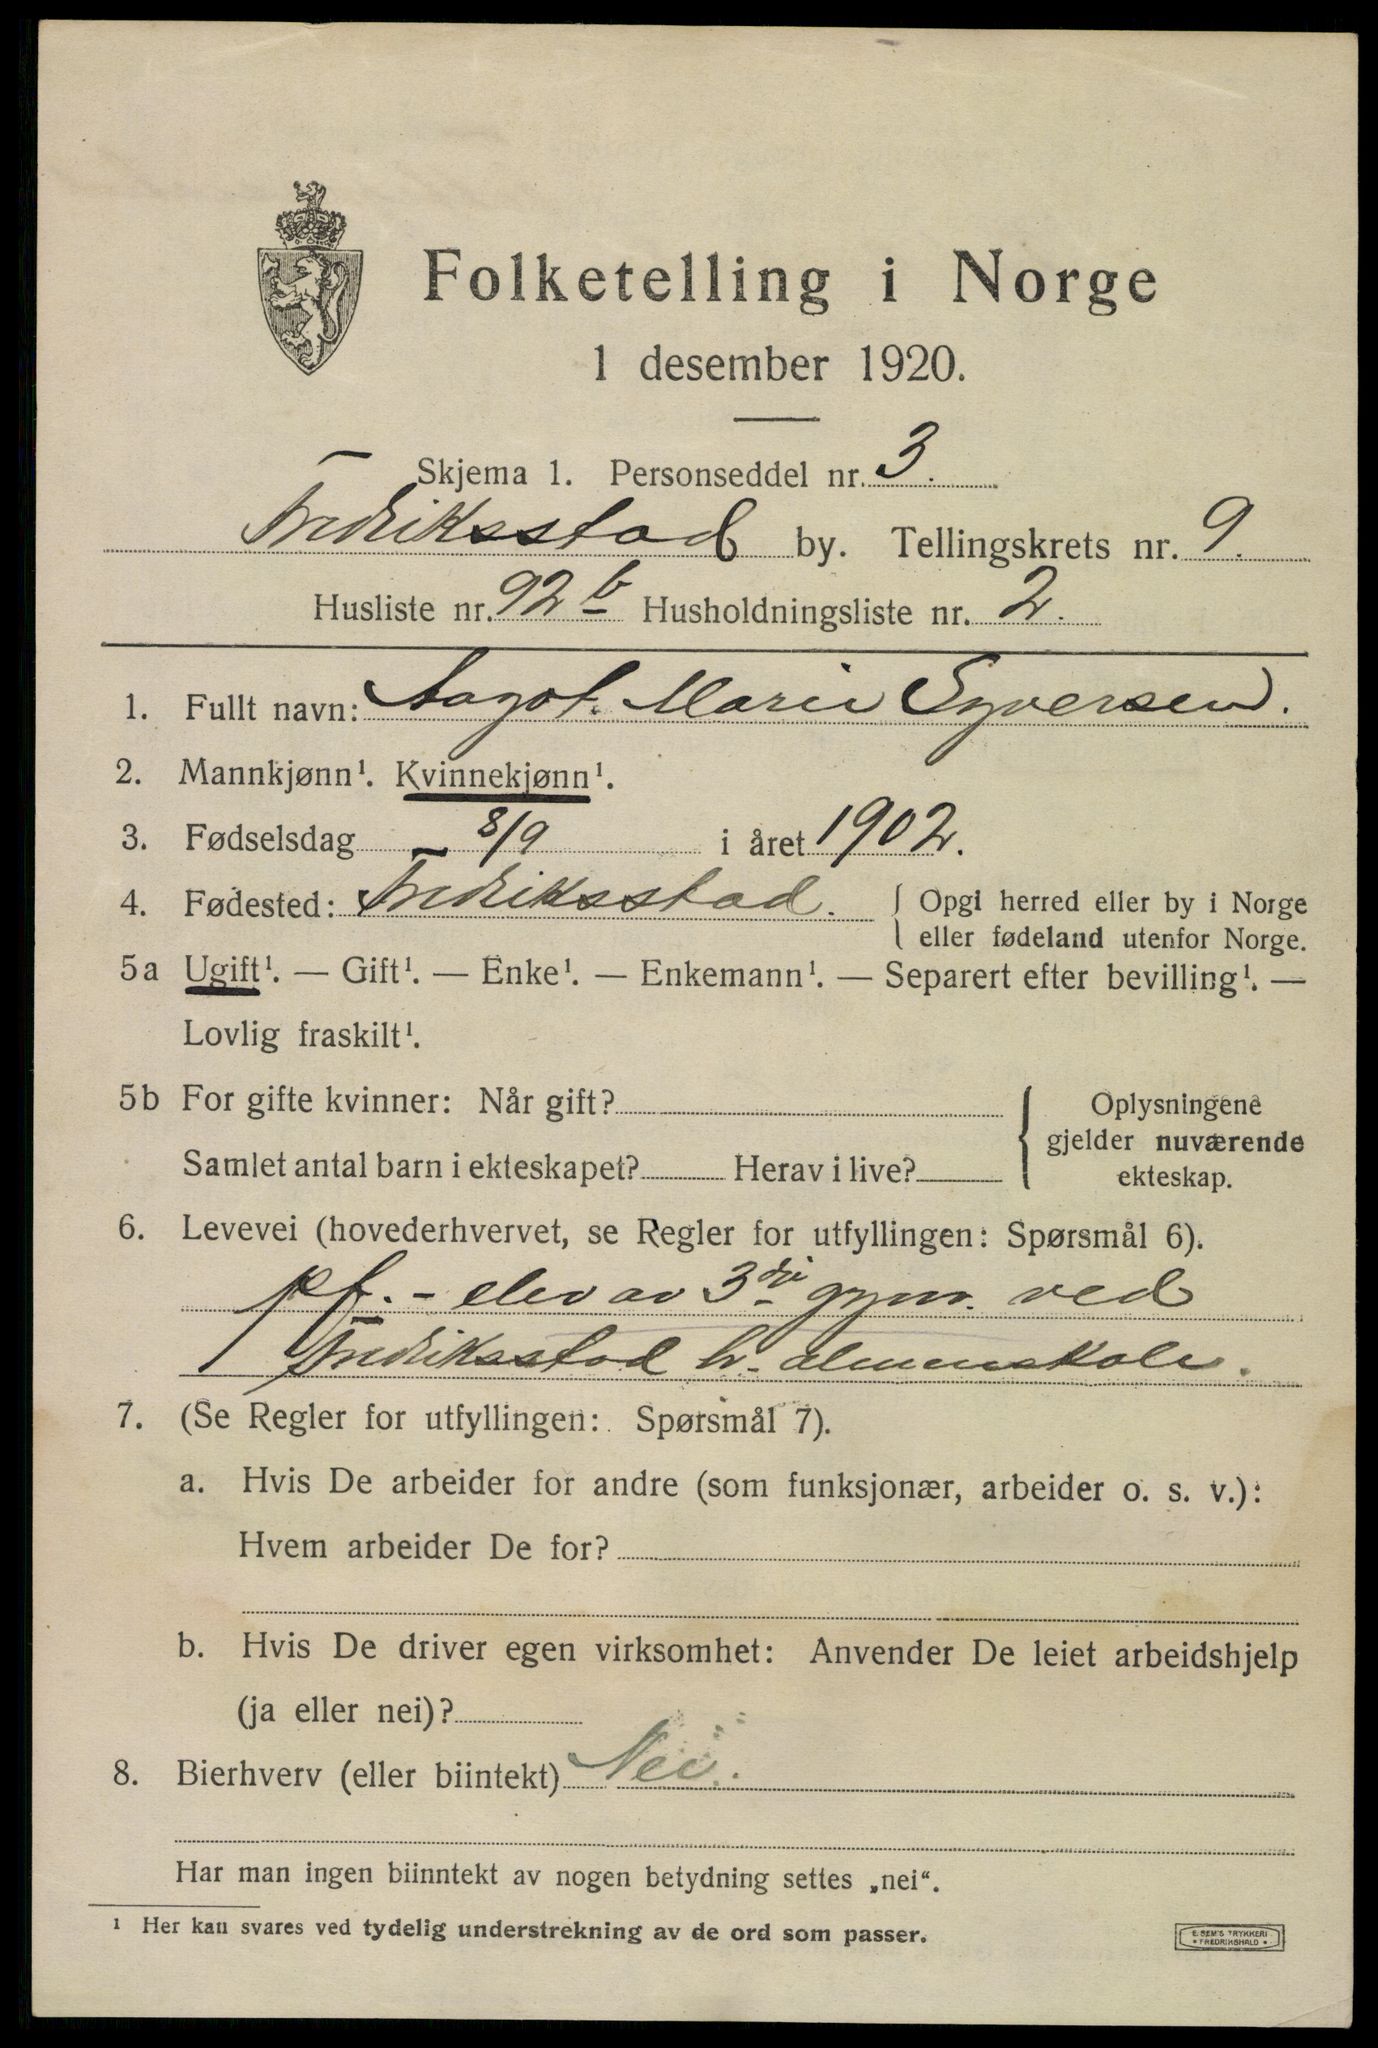 Folketelling i Norge
1 desember 1920.
Skjema 1. Personseddel nr. 3.
Fredriksstad by. Tellingskrets nr. 9.
Husliste nr. 92 b Husholdningsliste nr. 2.
1. Fullt navn: Aagot Marie Syversen.
2. Mannkjønn¹. Kvinnekjønn¹.
3. Fødselsdag 8/9 i året 1902.
4. Fødested: Fredriksstad. { Opgi herred eller by i Norge
eller fødeland utenfor Norge.
5a Ugift¹. — Gift¹. — Enke¹. — Enkemann¹. — Separert efter bevilling¹. —
Lovlig fraskilt¹.
5b For gifte kvinner: Når gift?
Samlet antal barn i ekteskapet? Herav i live?
{ Oplysningene
gjelder nuværende
ekteskap.
6. Levevei (hovederhvervet, se Regler for utfyllingen: Spørsmål 6).
pf. - elev av 3die gym. ved
Fredriksstad h. almenskole.
7. (Se Regler for utfyllingen: Spørsmål 7).
a. Hvis De arbeider for andre (som funksjonær, arbeider o. s. v.):
Hvem arbeider De for?
b. Hvis De driver egen virksomhet: Anvender De leiet arbeidshjelp
(ja eller nei)?
8. Bierhverv (eller biintekt) Nei.
Har man ingen biinntekt av nogen betydning settes „nei“.
¹ Her kan svares ved tydelig understrekning av de ord som passer.
E. SEM'S TRYKKERI
* FREDRIKSHALD *